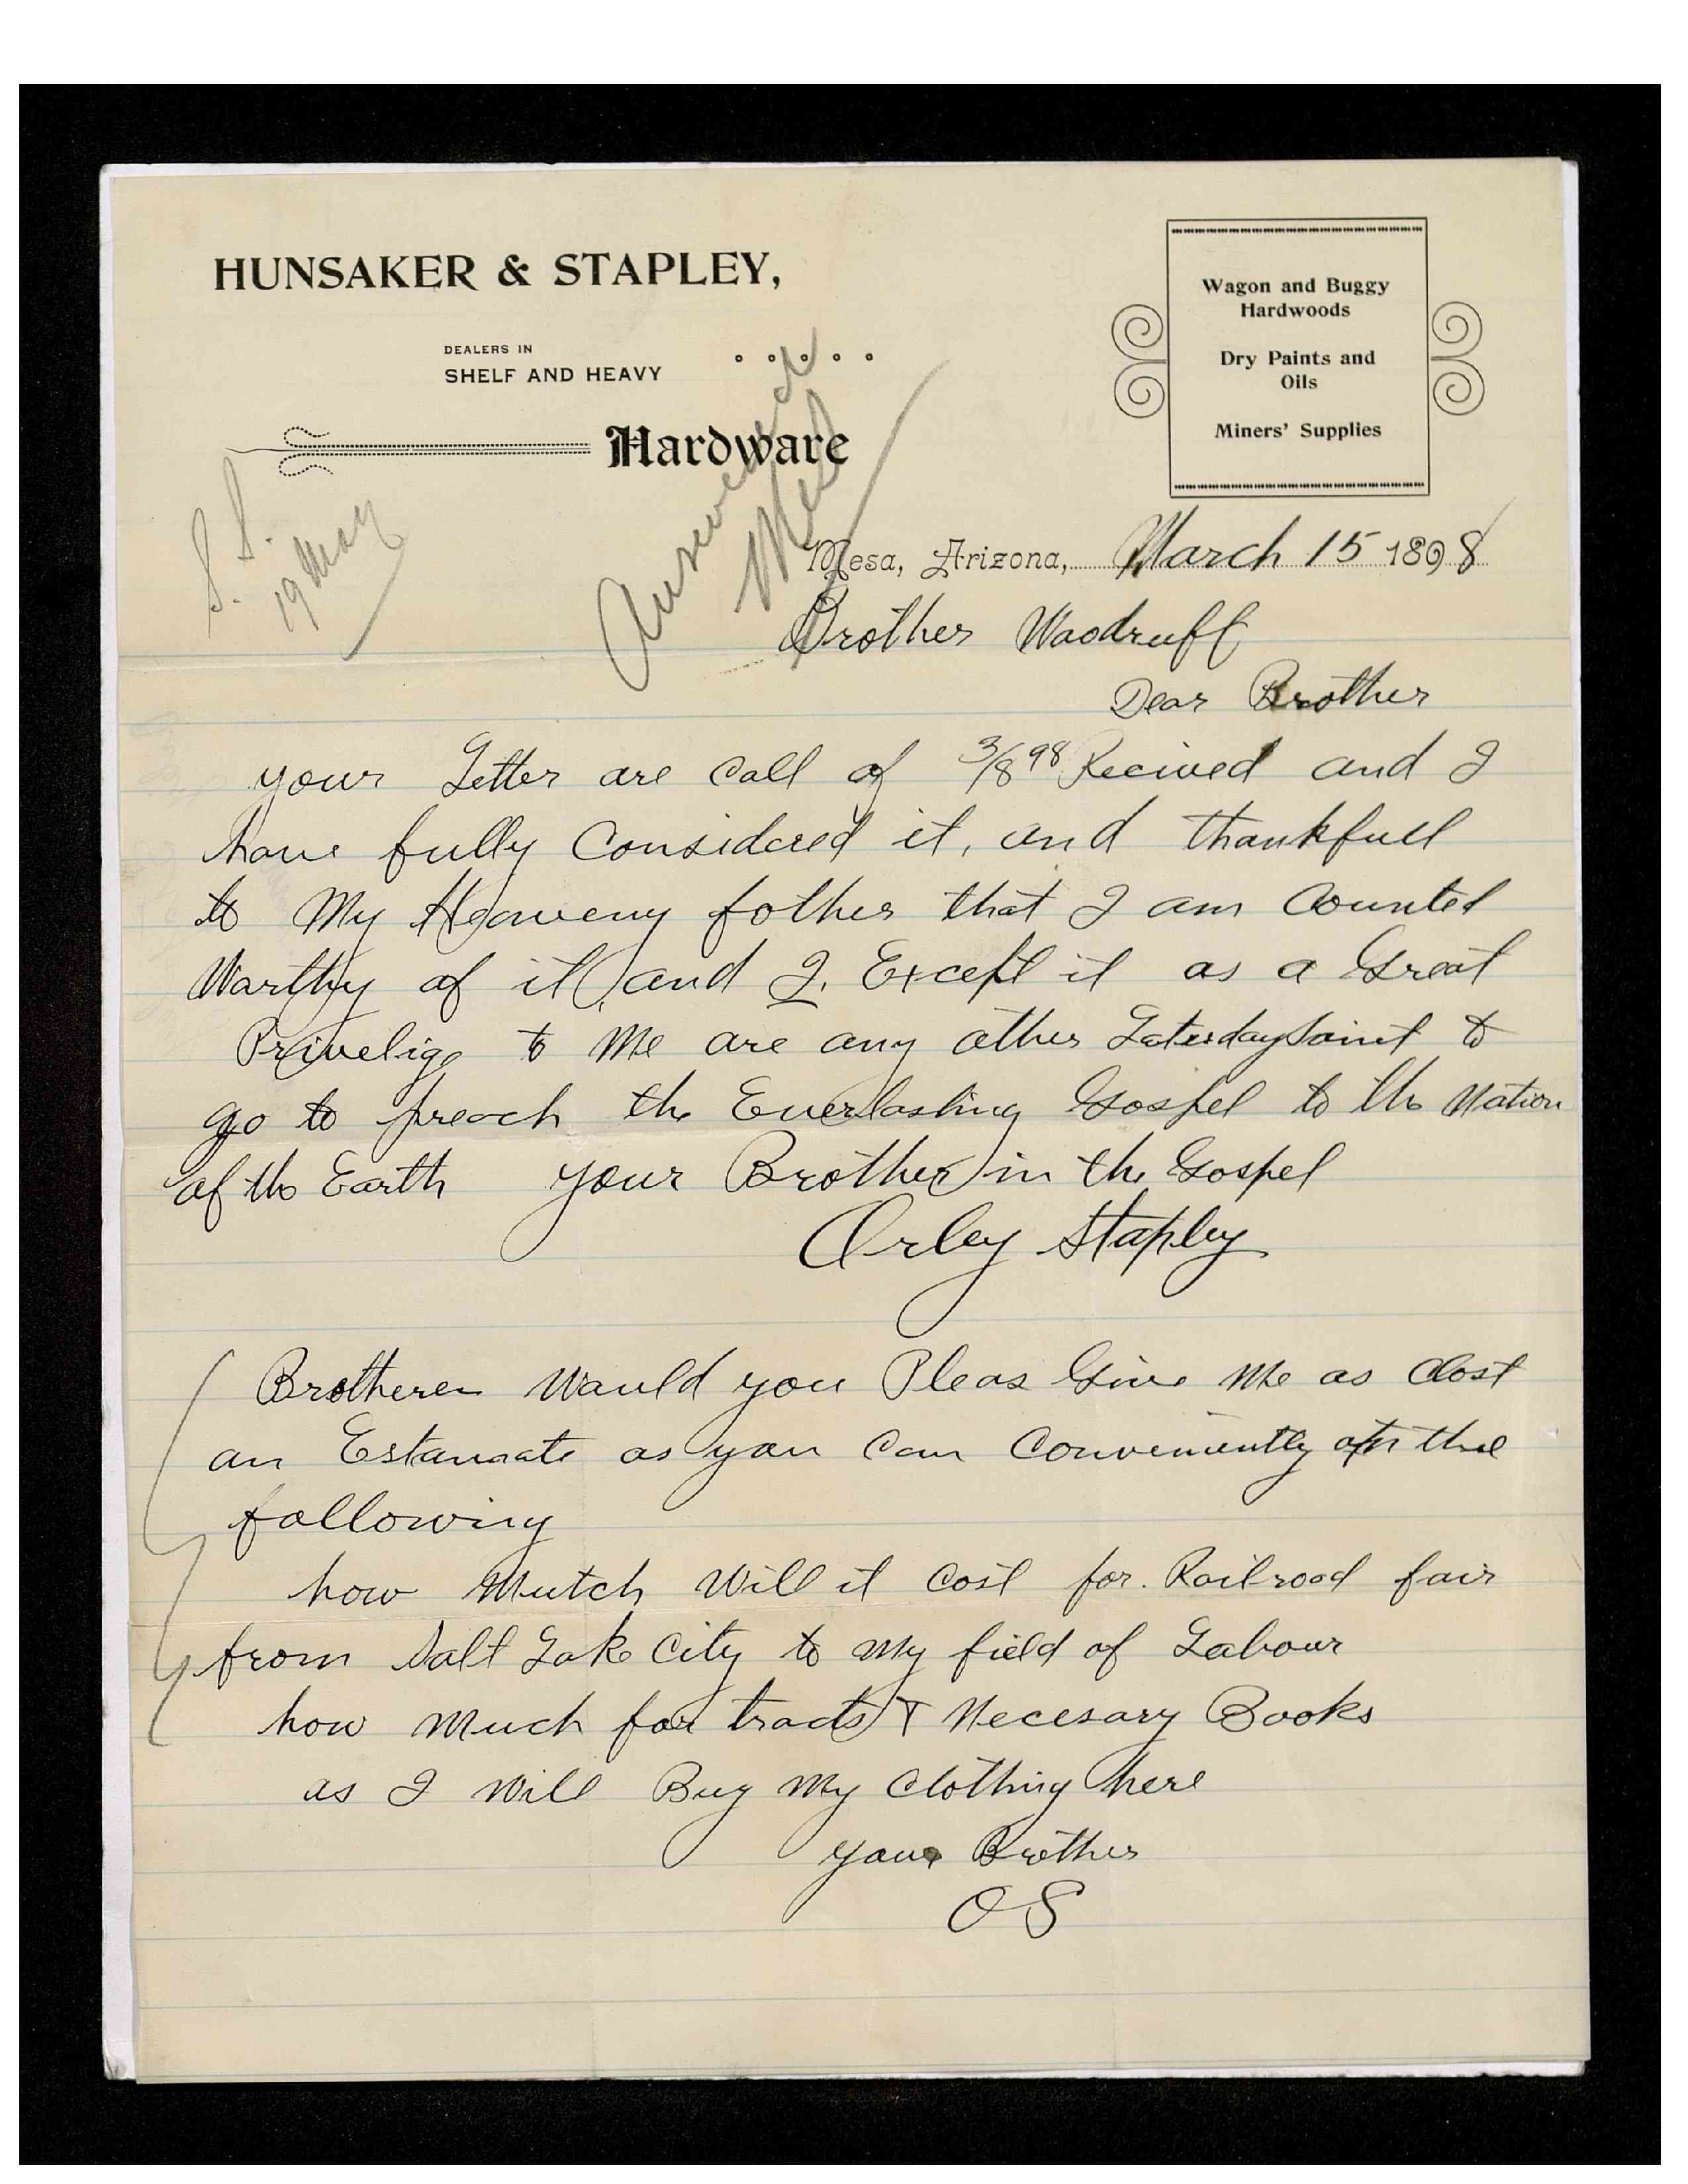 HUNSAKER & STAPLEY,
DEALERS IN
SHELF AND HEAVY
Hardware
Wagon and Buggy
Hardwoods
Dry Paints and
Oils
Miners' Supplies
S. S.
19 May
Answered
Mesa, Arizona, March 15 1898
Brother Woodruff
Dear Brother
your Letter are Call of 3/8 98 Recived and I
have fully Considered it, and thankfull
to My Heaveny father that I am Counted
Warthy of it, and I, Except it as a Great
Privelige to Me are any other LaterdaySaint to
go to preach the Everlasting Gospel to the Nation
of the Earth your Brother in the Gospel
Orley Stapley
Brotheren Would you Pleas Give Me as Clost
an Estamate as you Can Conveniently the
following
how Mutch Will it Cost for. Railroad fair
from Salt Lake City to My field of Labour
how Much for tracts & Necesary Books
as I Will Buy My Clothing here
your Brother
OS